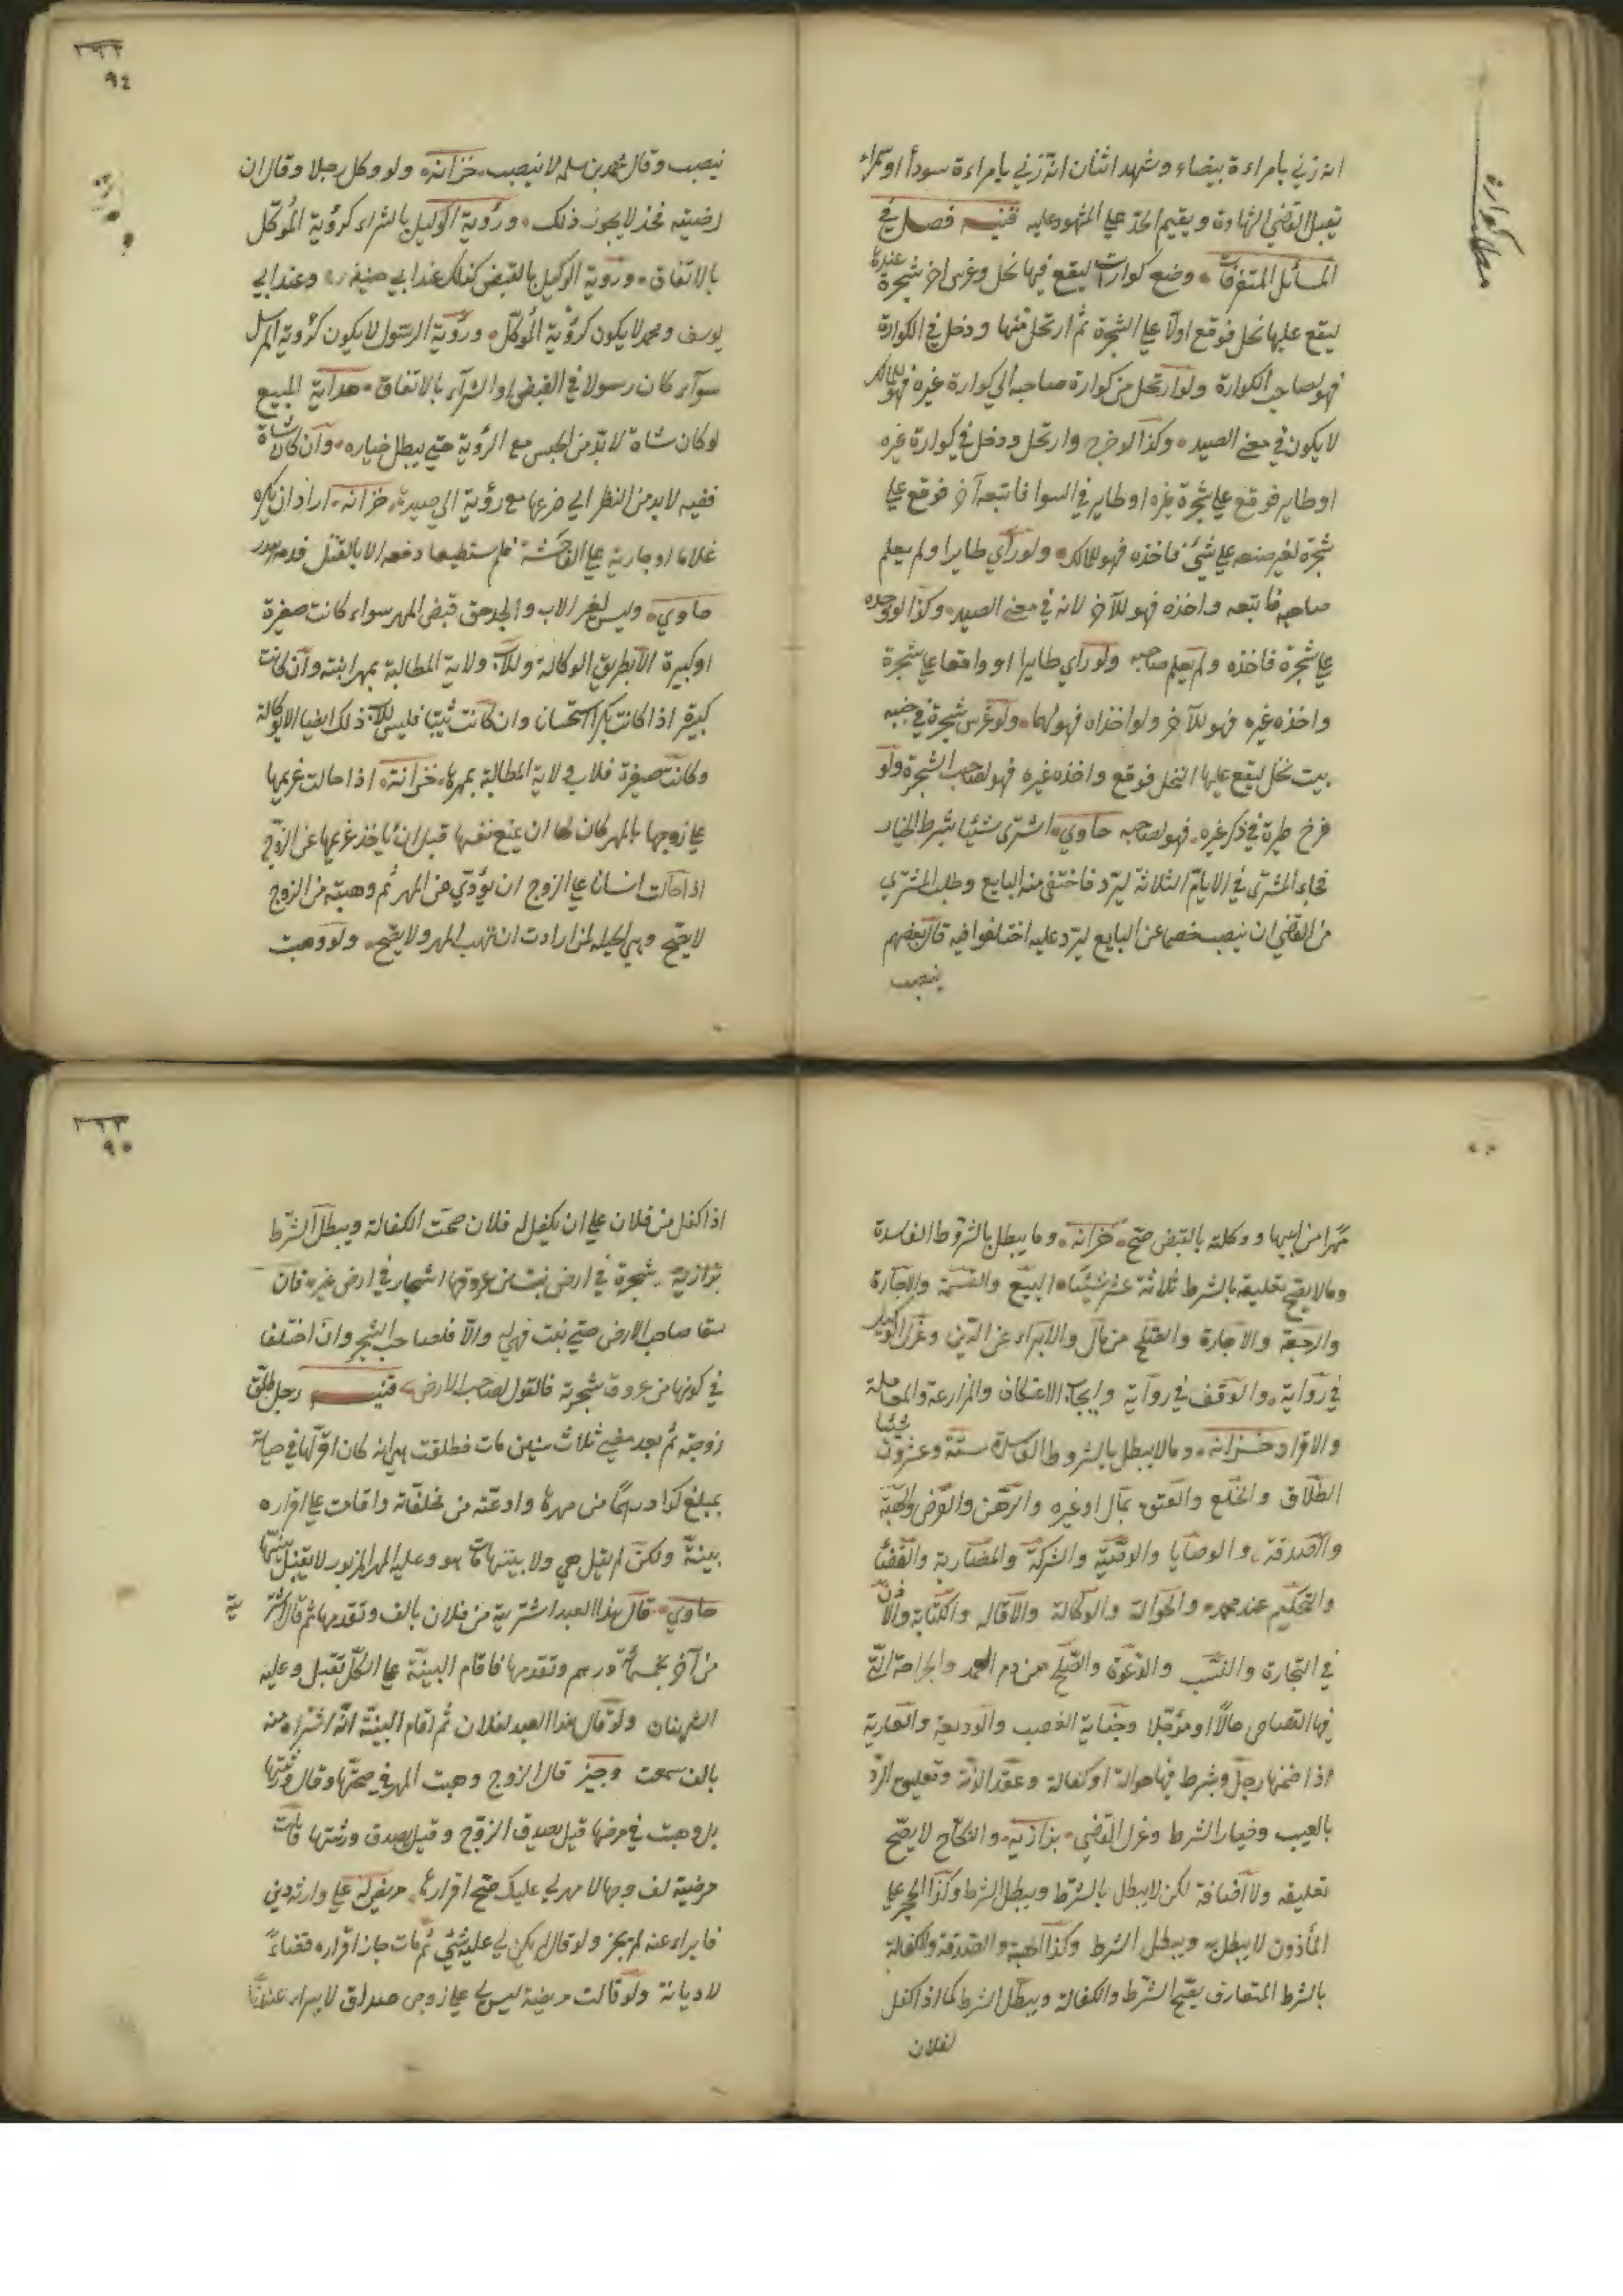 انه زني بامراءة بيضاء وشهد اثنان انه زني بامراءة سوداء او سمراء
تقبل القضي الشهادة ويقيم الحد علي المشهود عليه قنيه فصل في
المسائل المتفرقات وضع كوارات ليقع فيها نحل وغرس اخر شجرة عنده
ليقع عليها نحل فوقع اولا علي الشجرة ثم ارتحل منها ودخل في الكوارة
فهو لصاحب الكوارة ولو ارتحل من كوارة صاحبه الي كوارة غيره فهو للمالك
لا يكون في معني الصيد وكذا لو خرج وارتحل ودخل في كوارة غيره
او طاير فوقع علي شجرة غيره او طاير في السوا فاتبعه آخر فوقع علي
شجرة لغير صنعه علي شيئ فاخذه فهو للمالك ولو رأي طايرا ولم يعلم
صاحبه فاتبعه واخذه فهو للآخر لانه في معني الصيد وكذا لو وجده
علي شجرة فاخذه ولم يعلم صاحبه ولو رأي طايرا او واقعا علي شجرة
واخذه غيره فهو للآخر ولو اخذاه فهو لهما ولو غرس شجرة في جنبه
بيت نحل ليقع عليها النحل فوقع واخذه غيره فهو لصاحب الشجرة ولو
فرخ طيرة في وكر غيره فهو لصاحبه حاوي اشتري شيئا بشرط الخيار
فجاء المشتري في الايام الثلاثة ليرد فاختفي منه البايع وطلب المشتري
من القضي ان ينصب خصما عن البايع ليرد عليه اختلفوا فيه قال بعضهم
ينصب
مطلب كوارة
٣٦٢
٩٤
ينصب وقال محمد بن سلمه لا ينصب خزانه ولو وكل رجلا وقال ان
رضيته فخذ لا يجوز ذلك ورؤية الوكيل بالشراء كرؤية الموكل
بالاتفاق ورؤية الوكيل بالقبض كذلك عند ابي حنيفه وعند ابي
يوسف ومحمد لا يكون كرؤية الموكل ورؤية الرسول لا يكون كرؤية المرسل
سوآء كان رسولا في القبض او الشرآء بالاتفاق هداية المبيع
لو كان شاة لا بد من الجس مع الرؤية حتي يبطل خياره وان كان شاة
ففيه لا بد من النظر الي ضرعها مع رؤية الي خزانه اراد ان يكره
غلاما او جارية علي الفاحشة فلم يستطيعا دفعه الا بالقتل فدمه هدر
حاوي وليس لغير الاب والجد حق قبض المهر سواء كانت صغيرة
او كبيرة الا بطريق الوكالة وللاب ولاية المطالبة بمهر ابنته وان كانت
كبيرة اذا كانت بكرا استحسانا وان كانت ثيبا فليس للاب ذلك ايضا الا بوكالة
وكانت صغيرة فلاب ولاية المطالبة بمهرها خزانة اذا حالت غريمها
علي زوجها بالمهر كان لها ان يمنع نفسها قبل ان يأخذ غريمها عن الزوج
اذا حالت انسانا علي الزوج ان يؤدي من المهر ثم وهبته من الزوج
لا يصح وهي الحيله لمن ارادت ان تهب المهر ولا يصح ولو وهبت
مهرا من ابيها ووكلته بالقبض صح خزانه وما يبطل بالشروط الفاسدة
وما لا يصح تعليقه بالشرط ثلاثة عشر شيئا البيع والقسمة والاجارة
والرجعة والاجارة والصلح من مال والابراء عن الدين وعزل الوكيل
في رواية والوقف في رواية وايجاب الاعتكاف والمزارعة والمعاملة
والاقرار خزانه وما لا يبطل بالشروط الفاسدة ستة وعشرون شيئا
الطلاق والخلع والعتق بمال او غيره والرهن والقرض والهبة
والصدقة والوصايا والوصية والشركة والمضاربة والقضا
والتحكيم عند محمد والحوالة والوكالة والاقاله والكتابة والاذن
في التجارة والنسب والدعوة والصلح من دم العمد والجراحة التي
فيها القصاص حالا او مؤجلا وجناية الغصب والوديعة والعارية
اذا ضمنها رجل وشرط فيها حوالة او كفالة وعقد الذمة وتعليق الرد
بالعيب وخيار الشرط وعزل القضي بزازيه والنكاح لا يصح
تعليقه ولا اضافة لكن لا يبطل بالشرط ويبطل الشرط وكذا الحجر علي
المأذون لا يبطل به ويبطل الشرط وكذا الهبة والصدقة والكفالة
بالشرط المتعارف يصح الشرط والكفالة ويبطل الشرط كما اذا كفل
لفلان
٣٦٣
٩٥
اذا كفل من فلان علي ان يكفل له فلان صحت الكفالة ويبطل الشرط
بزازية شجرة في ارض نبت من عروقها اشجار في ارض غيره فان
سقا صاحب الارض حتي نبت فهي له والا فلصاحب الشجر وان اختلفا
في كونها من عروق شجرته فالقول لصاحب الارض قنيه رجل طلق
زوجته ثم بعد مضي ثلاث سنين مات فطلقت ميرانه كان اقر لها في حياته
بمبلغ كذا درهما من مهرها وادعته من مخلفاته واقامت علي اقراره
بينة ولكن لم يقل هي ولا بينتها مات هو وعليه المهر المزبور لا يقبل بينتها
حاوي قال هذا العبد اشتريته من فلان بالف ونقدتها ثم قال اشتريته
من آخر بخمسمأة درهم ونقدتها فاقام البينة علي الكل تقبل وعليه
الثمنان ولو قال هذا العبد لفلان ثم اقام البينة انه اشتراه منه
بالف سمعت وجيز قال الزوج وهبت المهر في صحتها وقال ورثتها
بل وهبت في مرضها قيل يصدق الزوج وقيل يصدق ورثتها قالت
مريضة لزوجها لا مهر لي عليك صح اقرارها مريض له علي وارثه دين
فابراءه عنه لم يجز ولو قال لم يكن لي عليه شيئ ثم مات جاز اقراره قضاء
لا ديانة ولو قالت مريضة ليس لي علي زوجي صداق لا يبراء عندنا